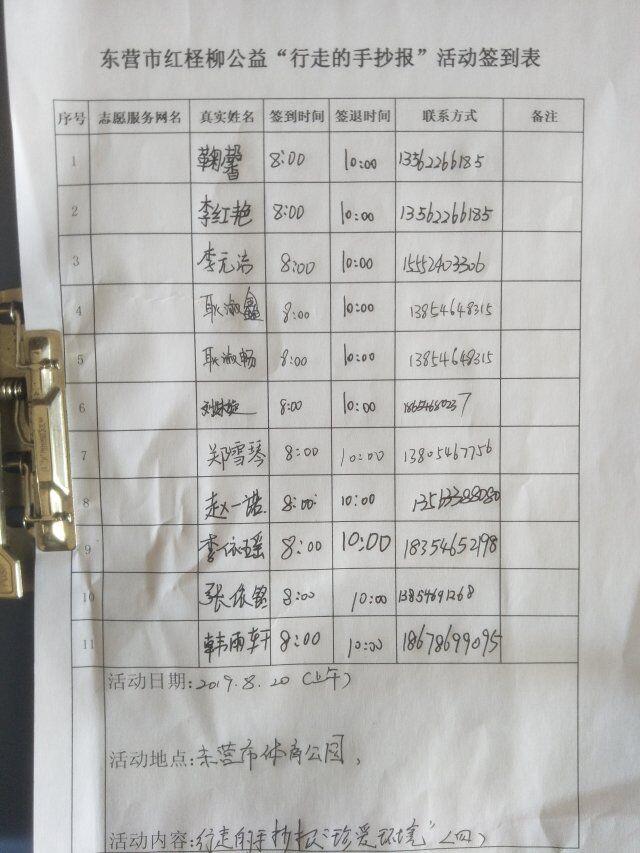 东营市红柽柳公益“行走的手抄报”活动签到表
序号 志愿服务网名 真实姓名 签到时间 签退时间 联系方式 备注
1 鞠馨 8:00 10:00 13562266185
2 李红艳 8:00 10:00 13562266185
3 李元洁 8:00 10:00 15552403306
4 耿淑鑫 8:00 10:00 13854648315
5 耿淑畅 8:00 10:00 13854648315
6 8:00 10:00
7 郑雪琴 8:00 10:00 13805467756
8 赵一诺 8:00 10:00
9 李依瑶 8:00 10:00 18354652198
10 张依铭 8:00 10:00
11 韩雨轩 8:00 10:00 18678699095
活动日期:2019.8.20(上午)
活动地点:东营市体育公园,
活动内容:行走的手抄报“珍爱环境”(四)